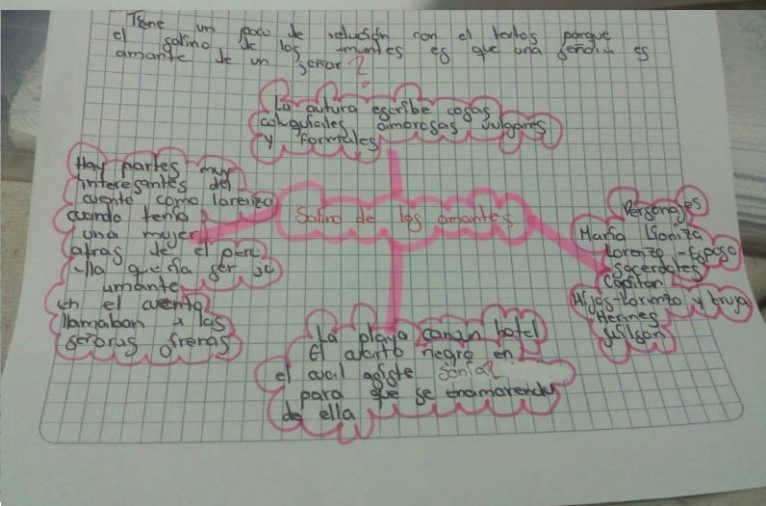 Tiene un poco de relusión con el textos porque
el salino de los amantes es que una señora es
amante de un señor ?
La autura escribe cosas
coluquiales amorosas vulgares
y formales
Hay partes muy
interesantes del
cuento como lorenzo
cuando tenia
una mujer
atras de el pero
ella queria ser su
amante
en el cuento
llamaban a las
señoras
Salino de los amantes
Personajes
María
Lorenzo - Esposo
sacerdotes
Capitan
Hijos - Lorenzo y bruja
Hermes
wilson
La playa canzun hotel
El negro en
el cual asiste Sonia?
para que se
de ella